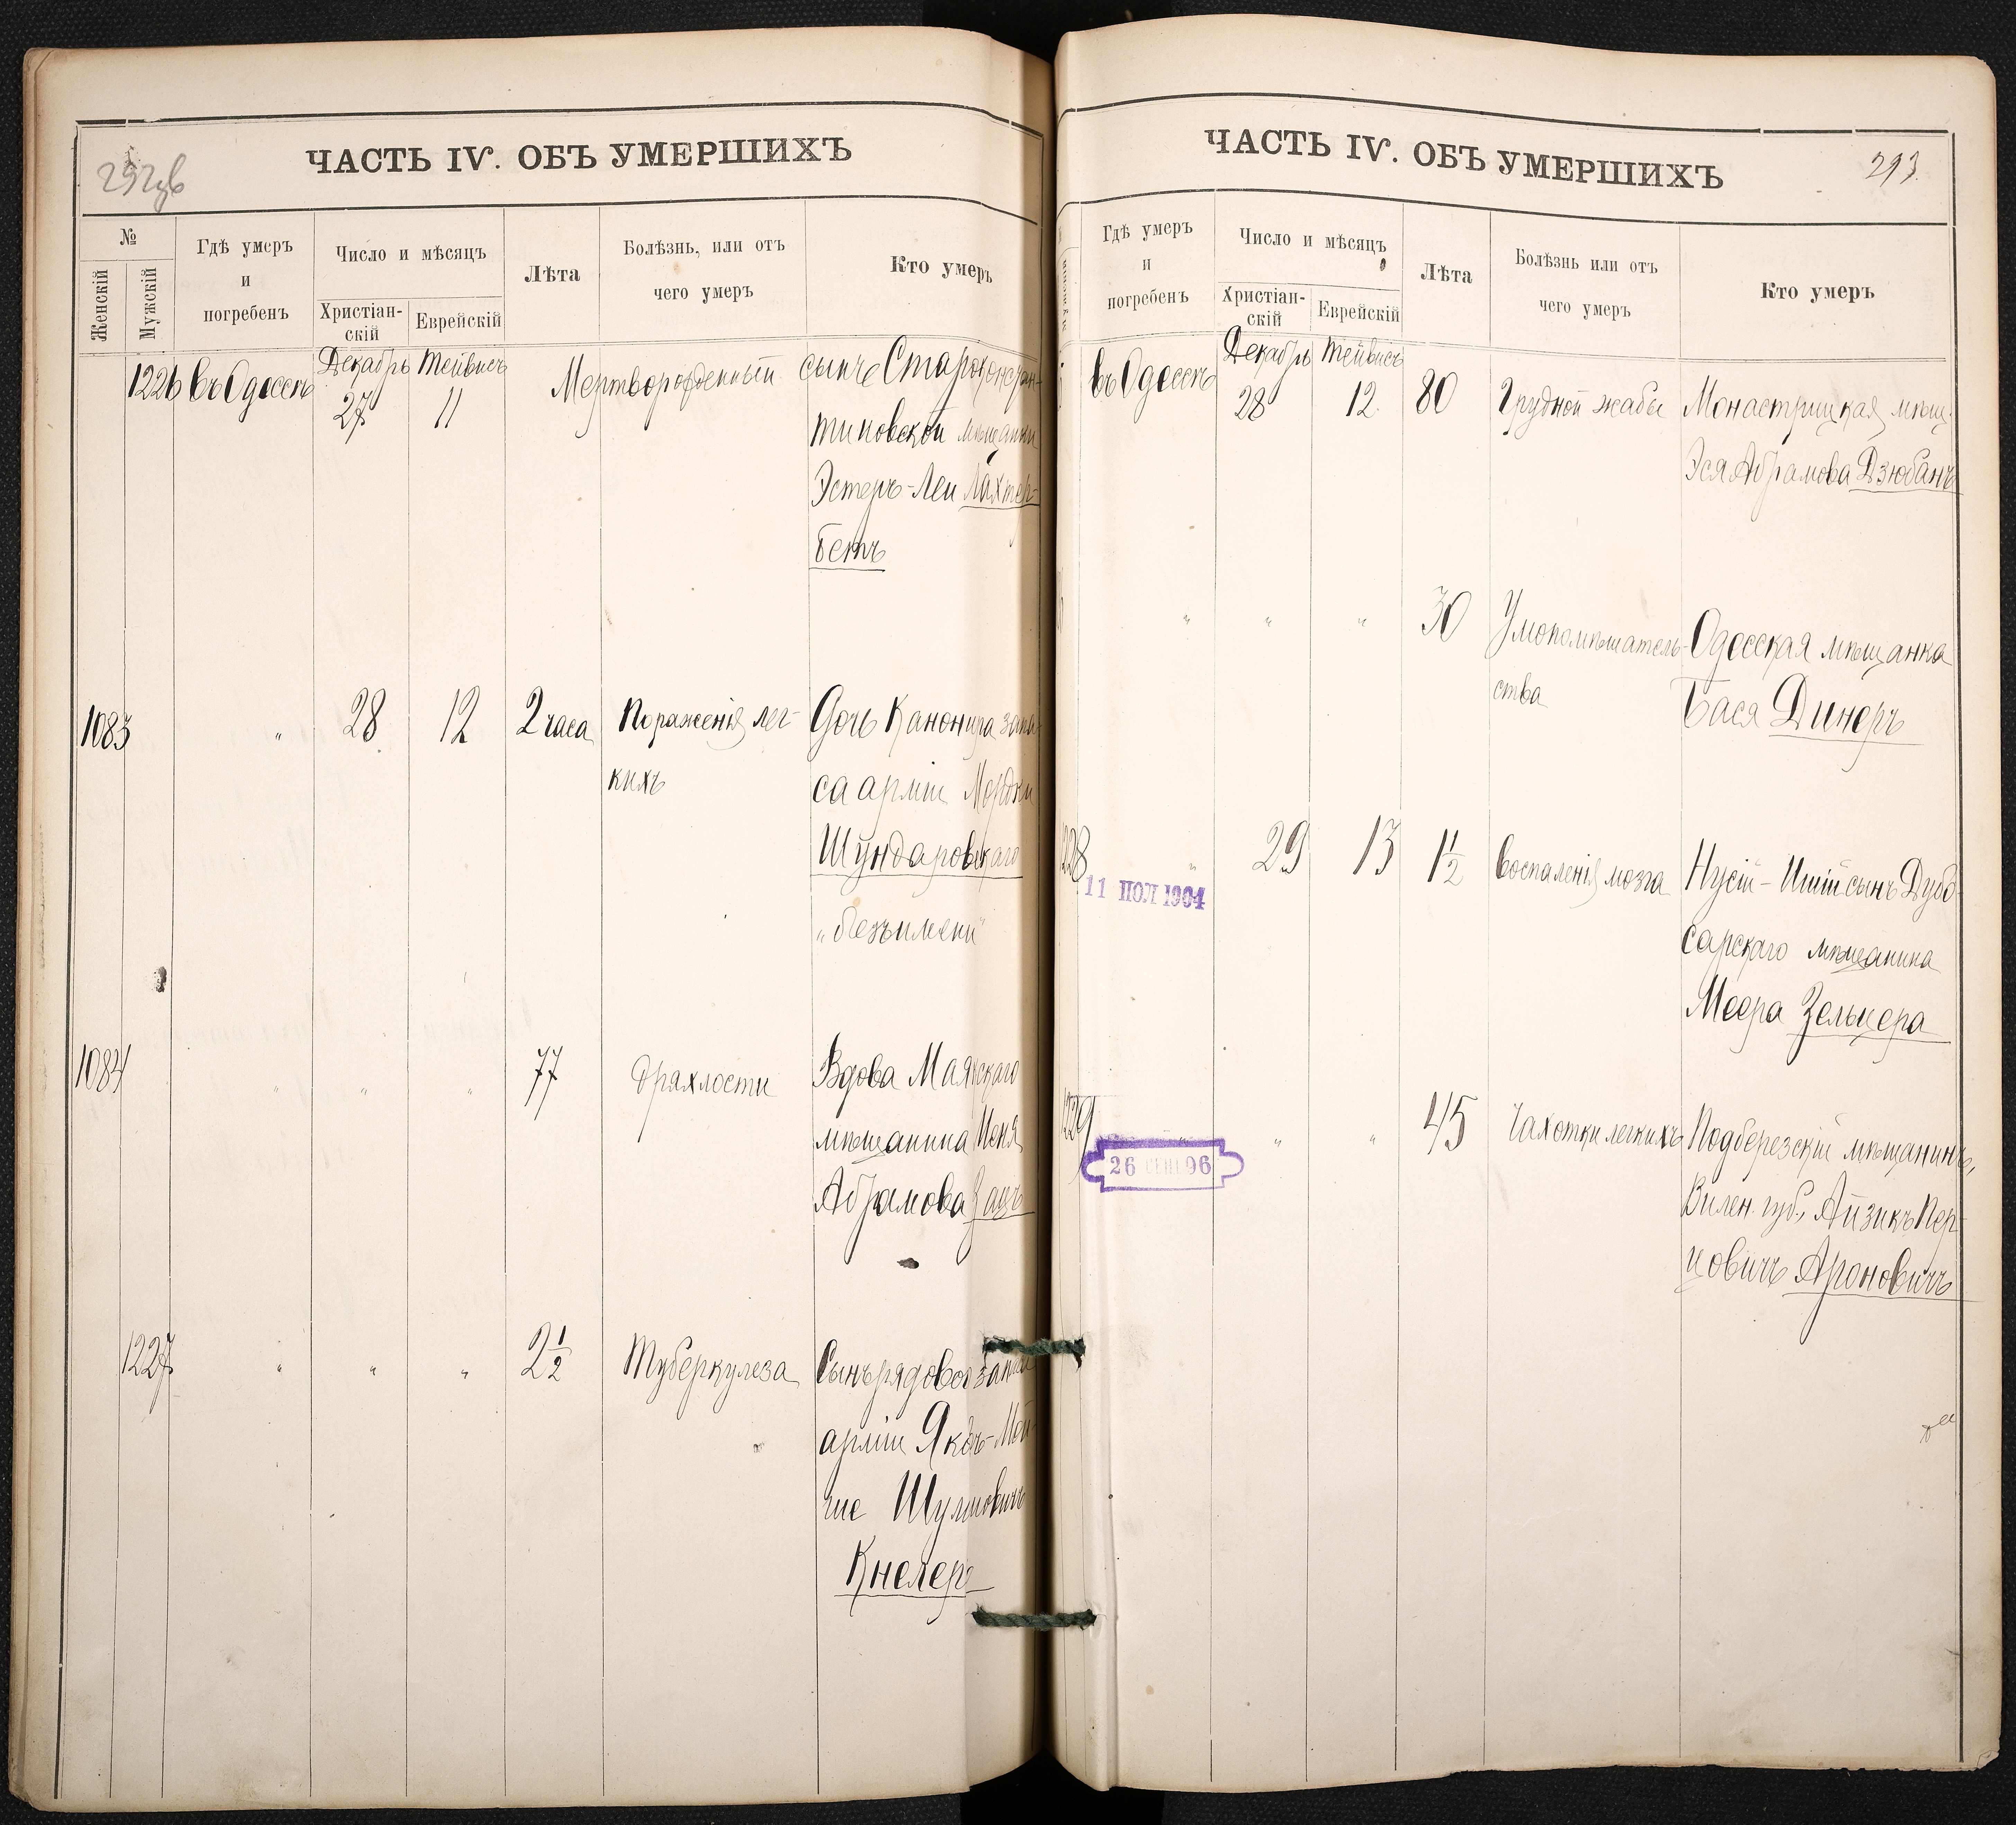 ЧАСТЬ IV. ОБЪ УМЕРШИХЪ
№
Женскій
Мужскій
Гдѣ умеръ
и
погребенъ
Число и мѣсяцъ
Христіан-
скій
Еврейскій
Лѣта
Болѣзнь, или отъ
чего умеръ
Кто умеръ
1226 въ Одессѣ Декабрь 27 Тейвисъ 11 Мертворожденный сынъ Староконстан-
тиновской мѣщанки
Эстеръ-Леи Лахтер-
бетъ
1083 " 28 12 2 часа Пораженія лег- Дочь Канонира запа-
кихъ са арміи Мордки
Шундаровскаго
"безъимени"
1084 " " " 77 дряхлости Вдова Маякскаго
мѣщанина
Абрамова Зацъ
1227 " " " 2 1/2 Туберкулеза Сынъ рядового запаса
арміи
Шулимовичъ
Кнелеръ
ЧАСТЬ IV. ОБЪ УМЕРШИХЪ
293
Гдѣ умеръ
и
погребенъ
Число и мѣсяцъ
Христіан-
скій
Еврейскій
Лѣта
Болѣзнь или отъ
чего умеръ
Кто умеръ
въ Одессѣ Декабрь 28 Тейвисъ 12 80 Грудной жабы Монастрицкая мѣщ.
Эся Абрамова Дзюбанъ
" " " 30 Умопомѣшатель- Одесская мѣщанка
ства Бася Динеръ
1228 " 29 13 1 1/2 Воспаленія мозга Нусій-Иший сынъ Дубо-
11 ІЮЛ 1904
сарскаго мѣщанина
Меера Зельцера
1229 " " " 45 Чахотки легкихъ Подберезскій мѣщанинъ,
26 СЕН 96
Вилен. губ., Айзикъ Пер-
цовичъ Ароновичъ